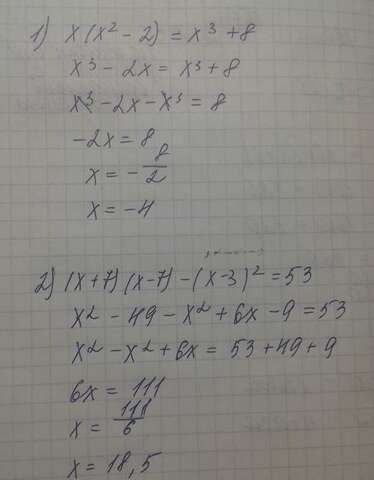 1) x(x² - 2) = x³ + 8
x³ - 2x = x³ + 8
x³ - 2x - x³ = 8
-2x = 8
x = - 8/2
x = -4
2) (x+7)(x-7) - (x-3)² = 53
x² - 49 - x² + 6x - 9 = 53
x² - x² + 6x = 53 + 49 + 9
6x = 111
x = 111/6
x = 18,5